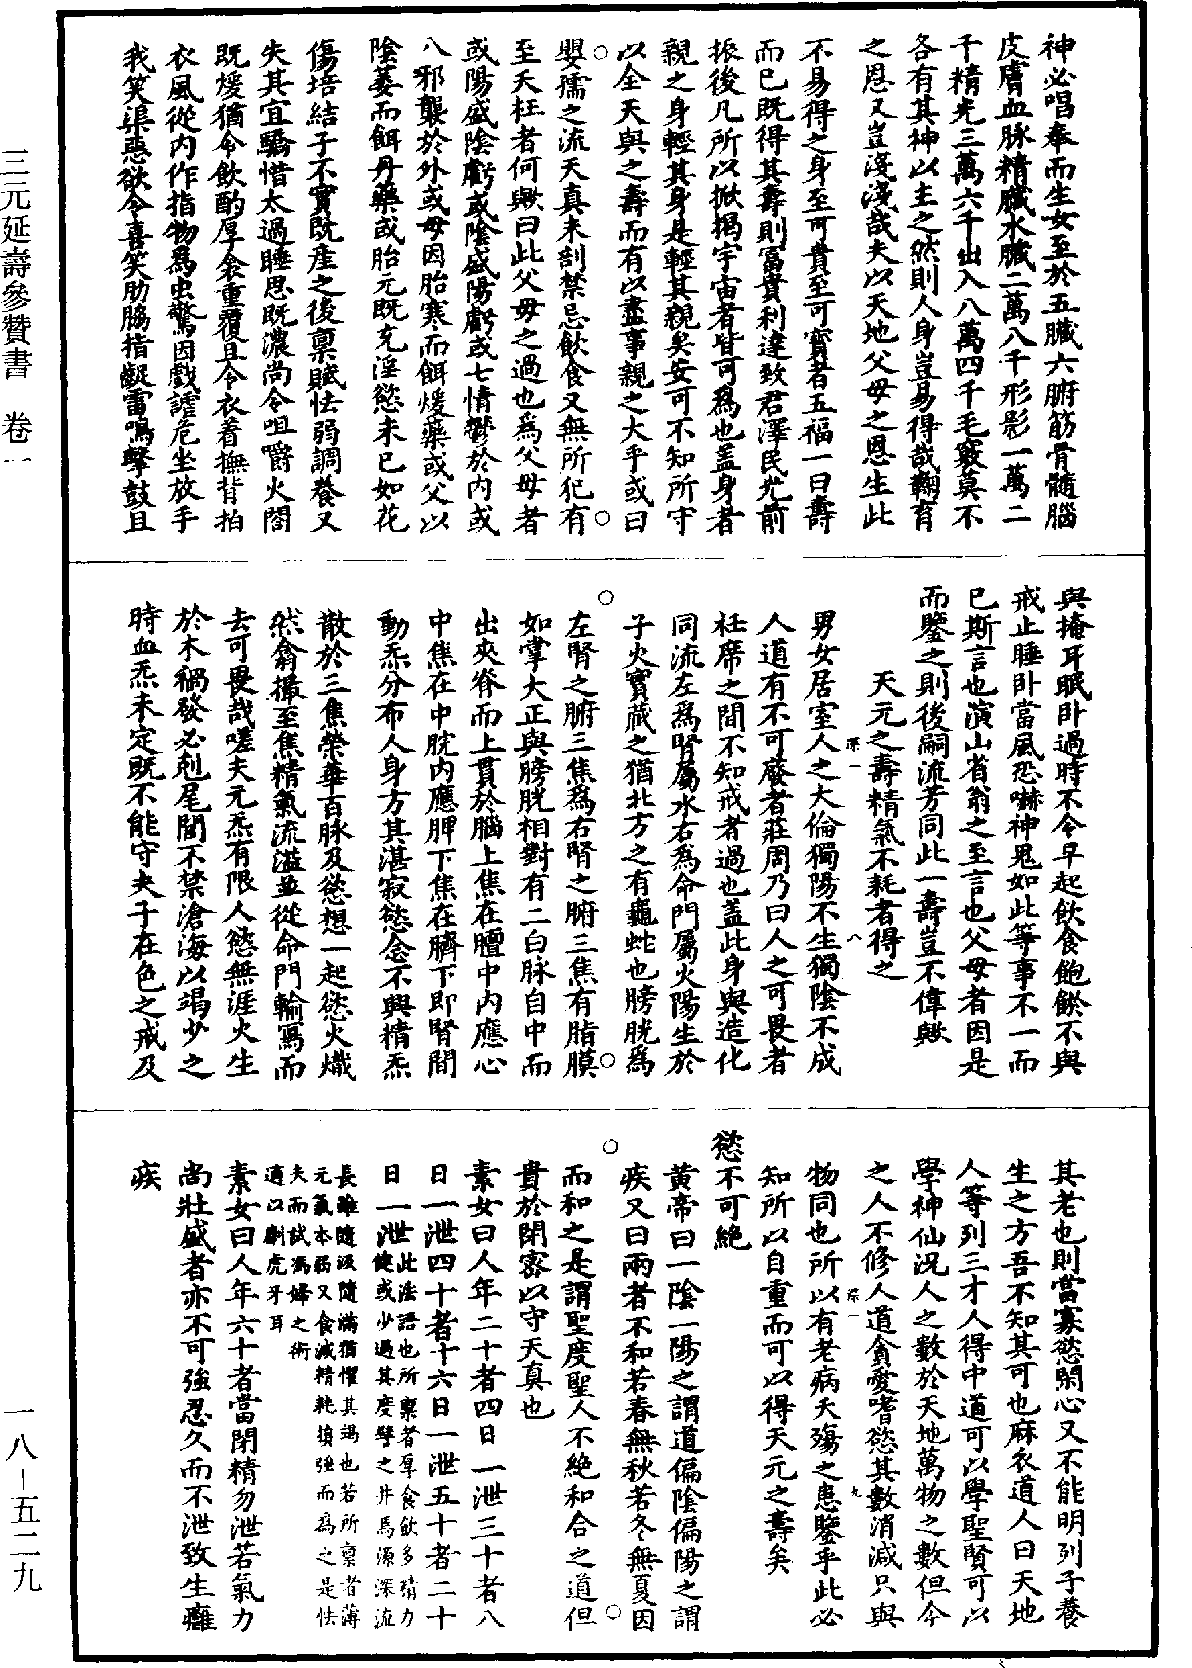 神必唱奉而生女至於五臟六腑筋骨髓腦
皮膚血脉精臟水臟二萬八千形影一萬二
千精光三萬六千出入八萬四千毛竅莫不
各有其神以主之然則人身豈易得哉鞠育
之恩又豈淺淺哉夫以天地父母之恩生此
不易得之身至可貴至可寳者五福一曰壽
而已既得其壽則富貴利達致君澤民光前
振後凡所以掀揭宇宙者皆可爲也盖身者
親之身輕其身是輕其親矣安可不知所守
以全天與之壽而有以盡事親之大乎或曰
嬰孺之流天真未剖禁忌飲食又無所犯有
至夭枉者何歟曰此父母之過也爲父母者
或陽盛陰虧或陰盛陽虧或七情鬱於内或
八邪襲於外或母因胎寒而餌煖藥或父以
陰萎而餌丹藥或胎元既充淫慾未已如花
傷培結子不實既産之後禀賦怯弱調養又
失其宜驕惜太過睡思既濃尚令咀嚼火閤
既煖猶令飲酌厚衾重覆且令衣着撫背拍
衣風從内作指物爲虫驚因戲謔危坐放手
我笑渠惡欲令喜笑肋脇指齪雷鳴擊鼓且
與掩耳眠卧過時不令早起飲食飽飫不與
戒止睡卧當風恐嚇神鬼如此等事不一而
已斯言也演山省翁之至言也父母者因是
而鑒之則後嗣流芳同此一壽豈不偉歟
天元之壽精氣不耗者得之
男女居室人之大倫獨陽不生獨陰不成
人道有不可廢者莊周乃曰人之可畏者
衽席之間不知戒者過也盖此身與造化
同流左爲腎屬水右爲命門屬火陽生於
子火實藏之猶北方之有龜蛇也膀胱爲
左腎之腑三焦爲右腎之腑三焦有脂膜
如掌大正與膀胱相對有二白脉自中而
出夾脊而上貫於腦上焦在膻中内應心
中焦在中脘内應脾下焦在臍下即腎間
動炁分布人身方其湛寂慾念不興精炁
散於三焦榮華百脉及慾想一起慾火熾
然翕撮至焦精氣流溢並從命門輸寫而
去可畏哉嗟夫元炁有限人慾無涯火生
於木禍發必剋尾閭不禁滄海以竭少之
時血炁未定既不能守夫子在色之戒及
其老也則當寡慾閑心又不能明列子養
生之方吾不知其可也麻衣道人曰天地
人等列三才人得中道可以學聖賢可以
學神仙況人之數於天地萬物之數但今
之人不修人道貪愛嗜慾其數消減只與
物同也所以有老病夭殤之患鑒乎此必
知所以自重而可以得天元之壽矣
慾不可絶
黄帝曰一陰一陽之謂道偏陰偏陽之謂
疾又曰兩者不和若春無秋若冬無夏因
而和之是謂聖度聖人不絶和合之道但
貴於閉密以守天真也
素女曰人年二十者四日一泄三十者八
日一泄四十者十六日一泄五十者二十
日一泄此法語也所禀者厚食飲多精力
健或少過其度譬之井焉源深流
長雖隨汲隨滿猶懼其竭也若所禀者薄
元氣本弱又食減精耗損強而爲之是怯
夫而試馮婦之術
適以劘虎牙耳
素女曰人年六十者當閉精勿泄若氣力
尚壯盛者亦不可強忍久而不泄致生癰
疾
三元延壽參贊書 卷一
一八-五二九